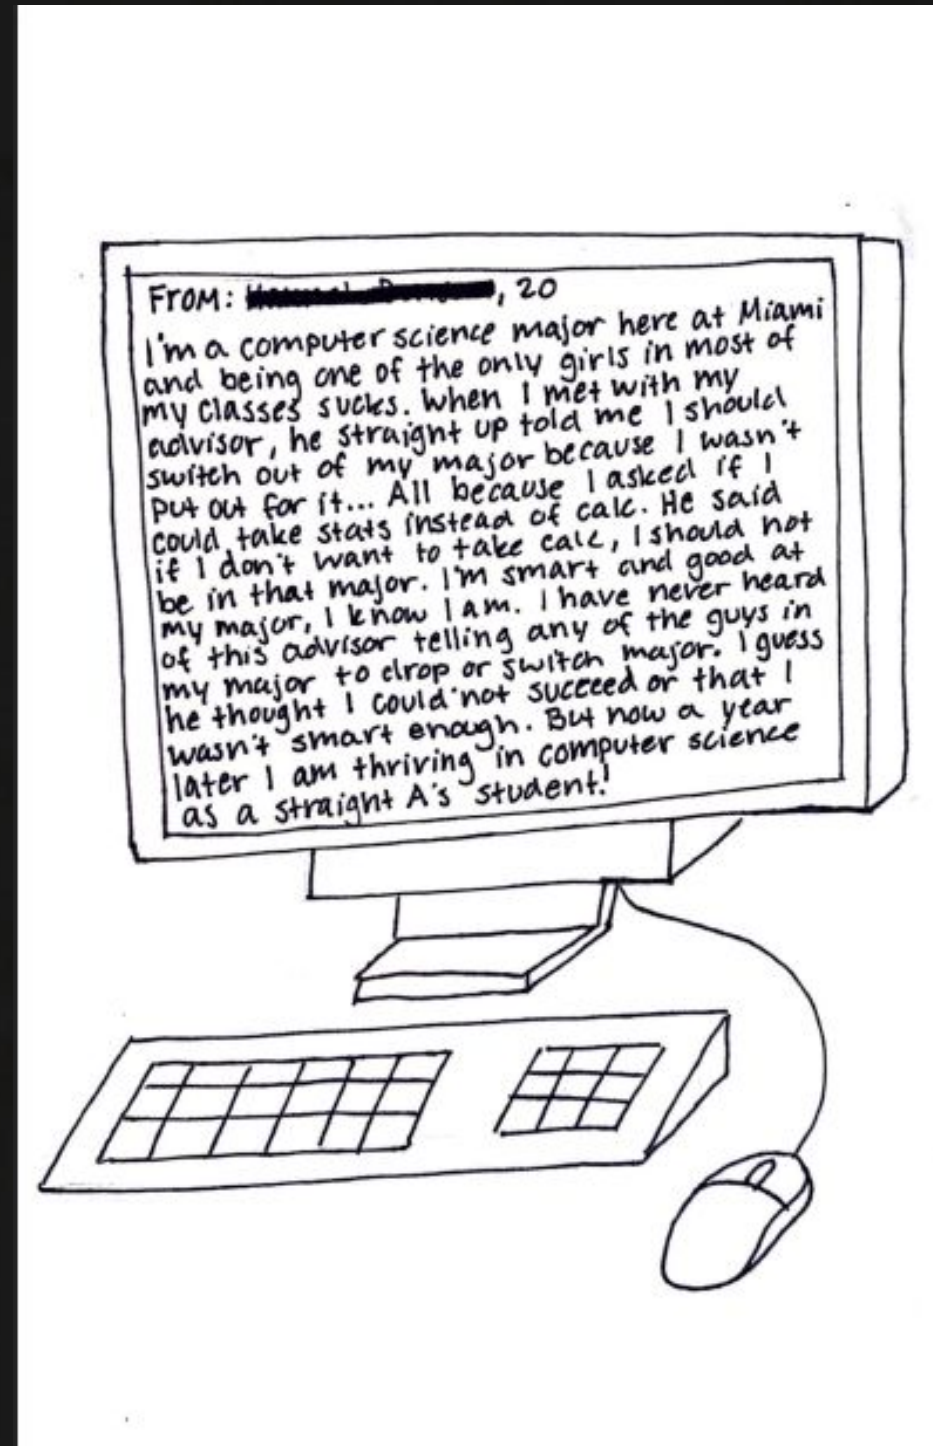 FROM: , 20
I'm a computer science major here at Miami
and being one of the only girls in most of
my classes sucks. When I met with my
advisor, he straight up told me I should
switch out of my major because I wasn't
put out for it... All because I asked if I
could take stats instead of calc. He said
if I don't want to take calc, I should not
be in that major. I'm smart and good at
my major, I know I am. I have never heard
of this advisor telling any of the guys in
my major to drop or switch major. I guess
he thought I could not succeed or that I
wasn't smart enough. But now a year
later I am thriving in computer science
as a straight A's student!